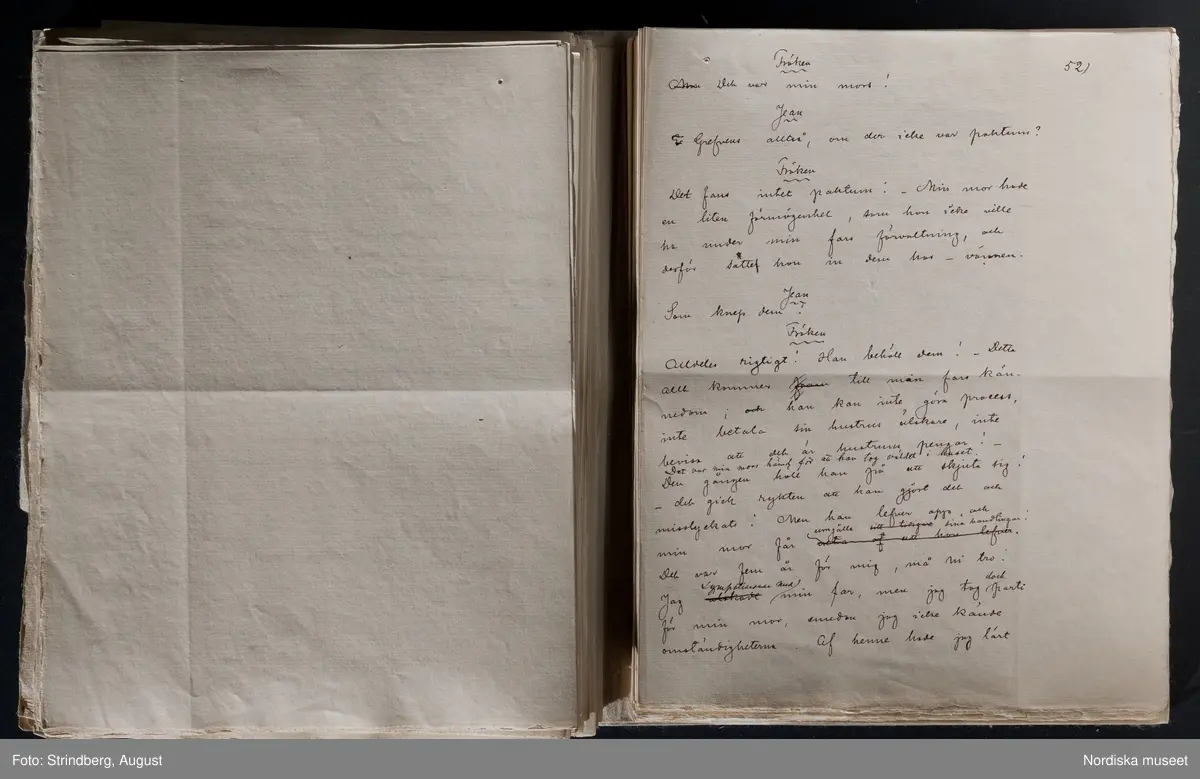 52)
Fröken
Det var min mors!
Jean
Grefvens alltså, om der icke var paktum?
Fröken
Det fans intet paktum! – Min mor hade
en liten förmögenhet, som hon icke ville
ha under min fars förvaltning, och
derför satte hon in dem hos – vännen.
Jean
Som knep dem!
Fröken
Alldeles rigtigt! Han behöll dem! – Detta
allt kommer fram till min fars kän-
nedom; och han kan inte göra process,
inte betala sin hustrus älskare, inte
bevisa att det är hustruns pengar! –
Det var min mors hämd för att han tog väldet i huset.
Den gången höll han på att skjuta sig!
– det gick rykten att han gjort det och
misslyckats! Men han lefver opp, och
umgälla sina handlingar!
min mor får att hon lefver.
Det var fem år för mig, må ni tro!
sympatiserade med dock
Jag älskade min far, men jag tog parti
för min mor, emedan jag icke kände
omständigheterna. Af henne hade jag lärt
Foto: Strindberg, August
Nordiska museet